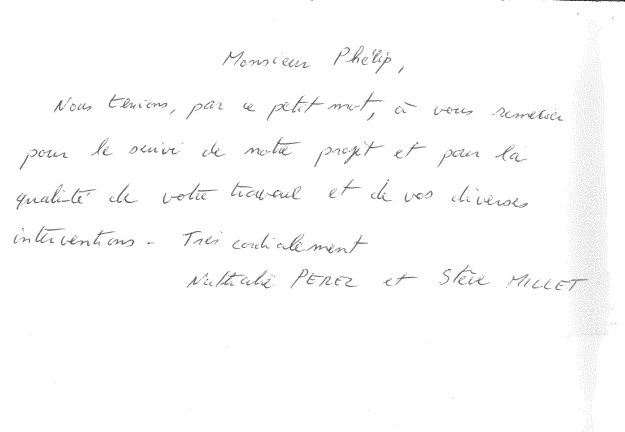 Monsieur Phélip,
Nous tenions, par ce petit mot, à vous remercier
pour le suivi de notre projet et pour la
qualité de votre travail et de vos diverses
interventions. Très cordialement
Nathalie PEREZ et Stève MILLET